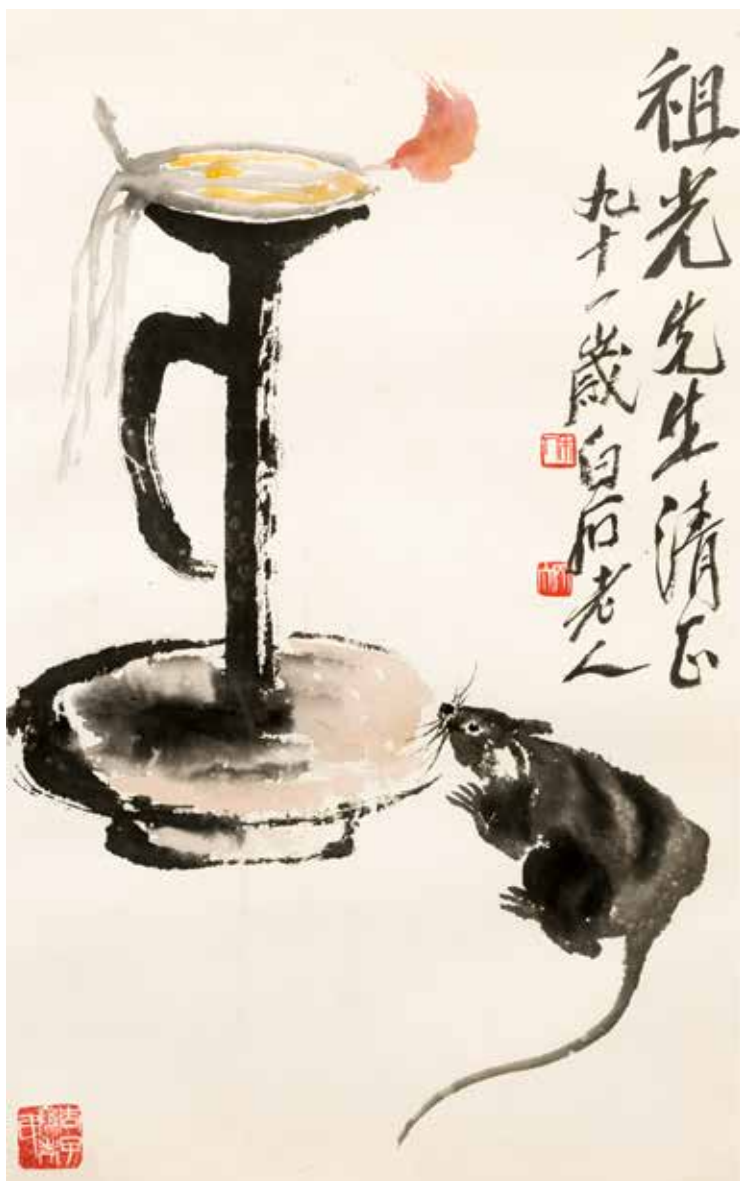 祖光先生清正
九十一歲白石老人